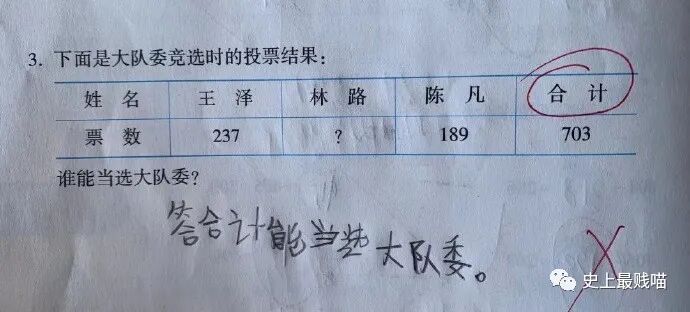 3. 下面是大队委竞选时的投票结果：
姓 名 王 泽 林 路 陈 凡 合 计
票 数 237 ? 189 703
谁能当选大队委？
答合计能当选大队委。
史上最贱喵